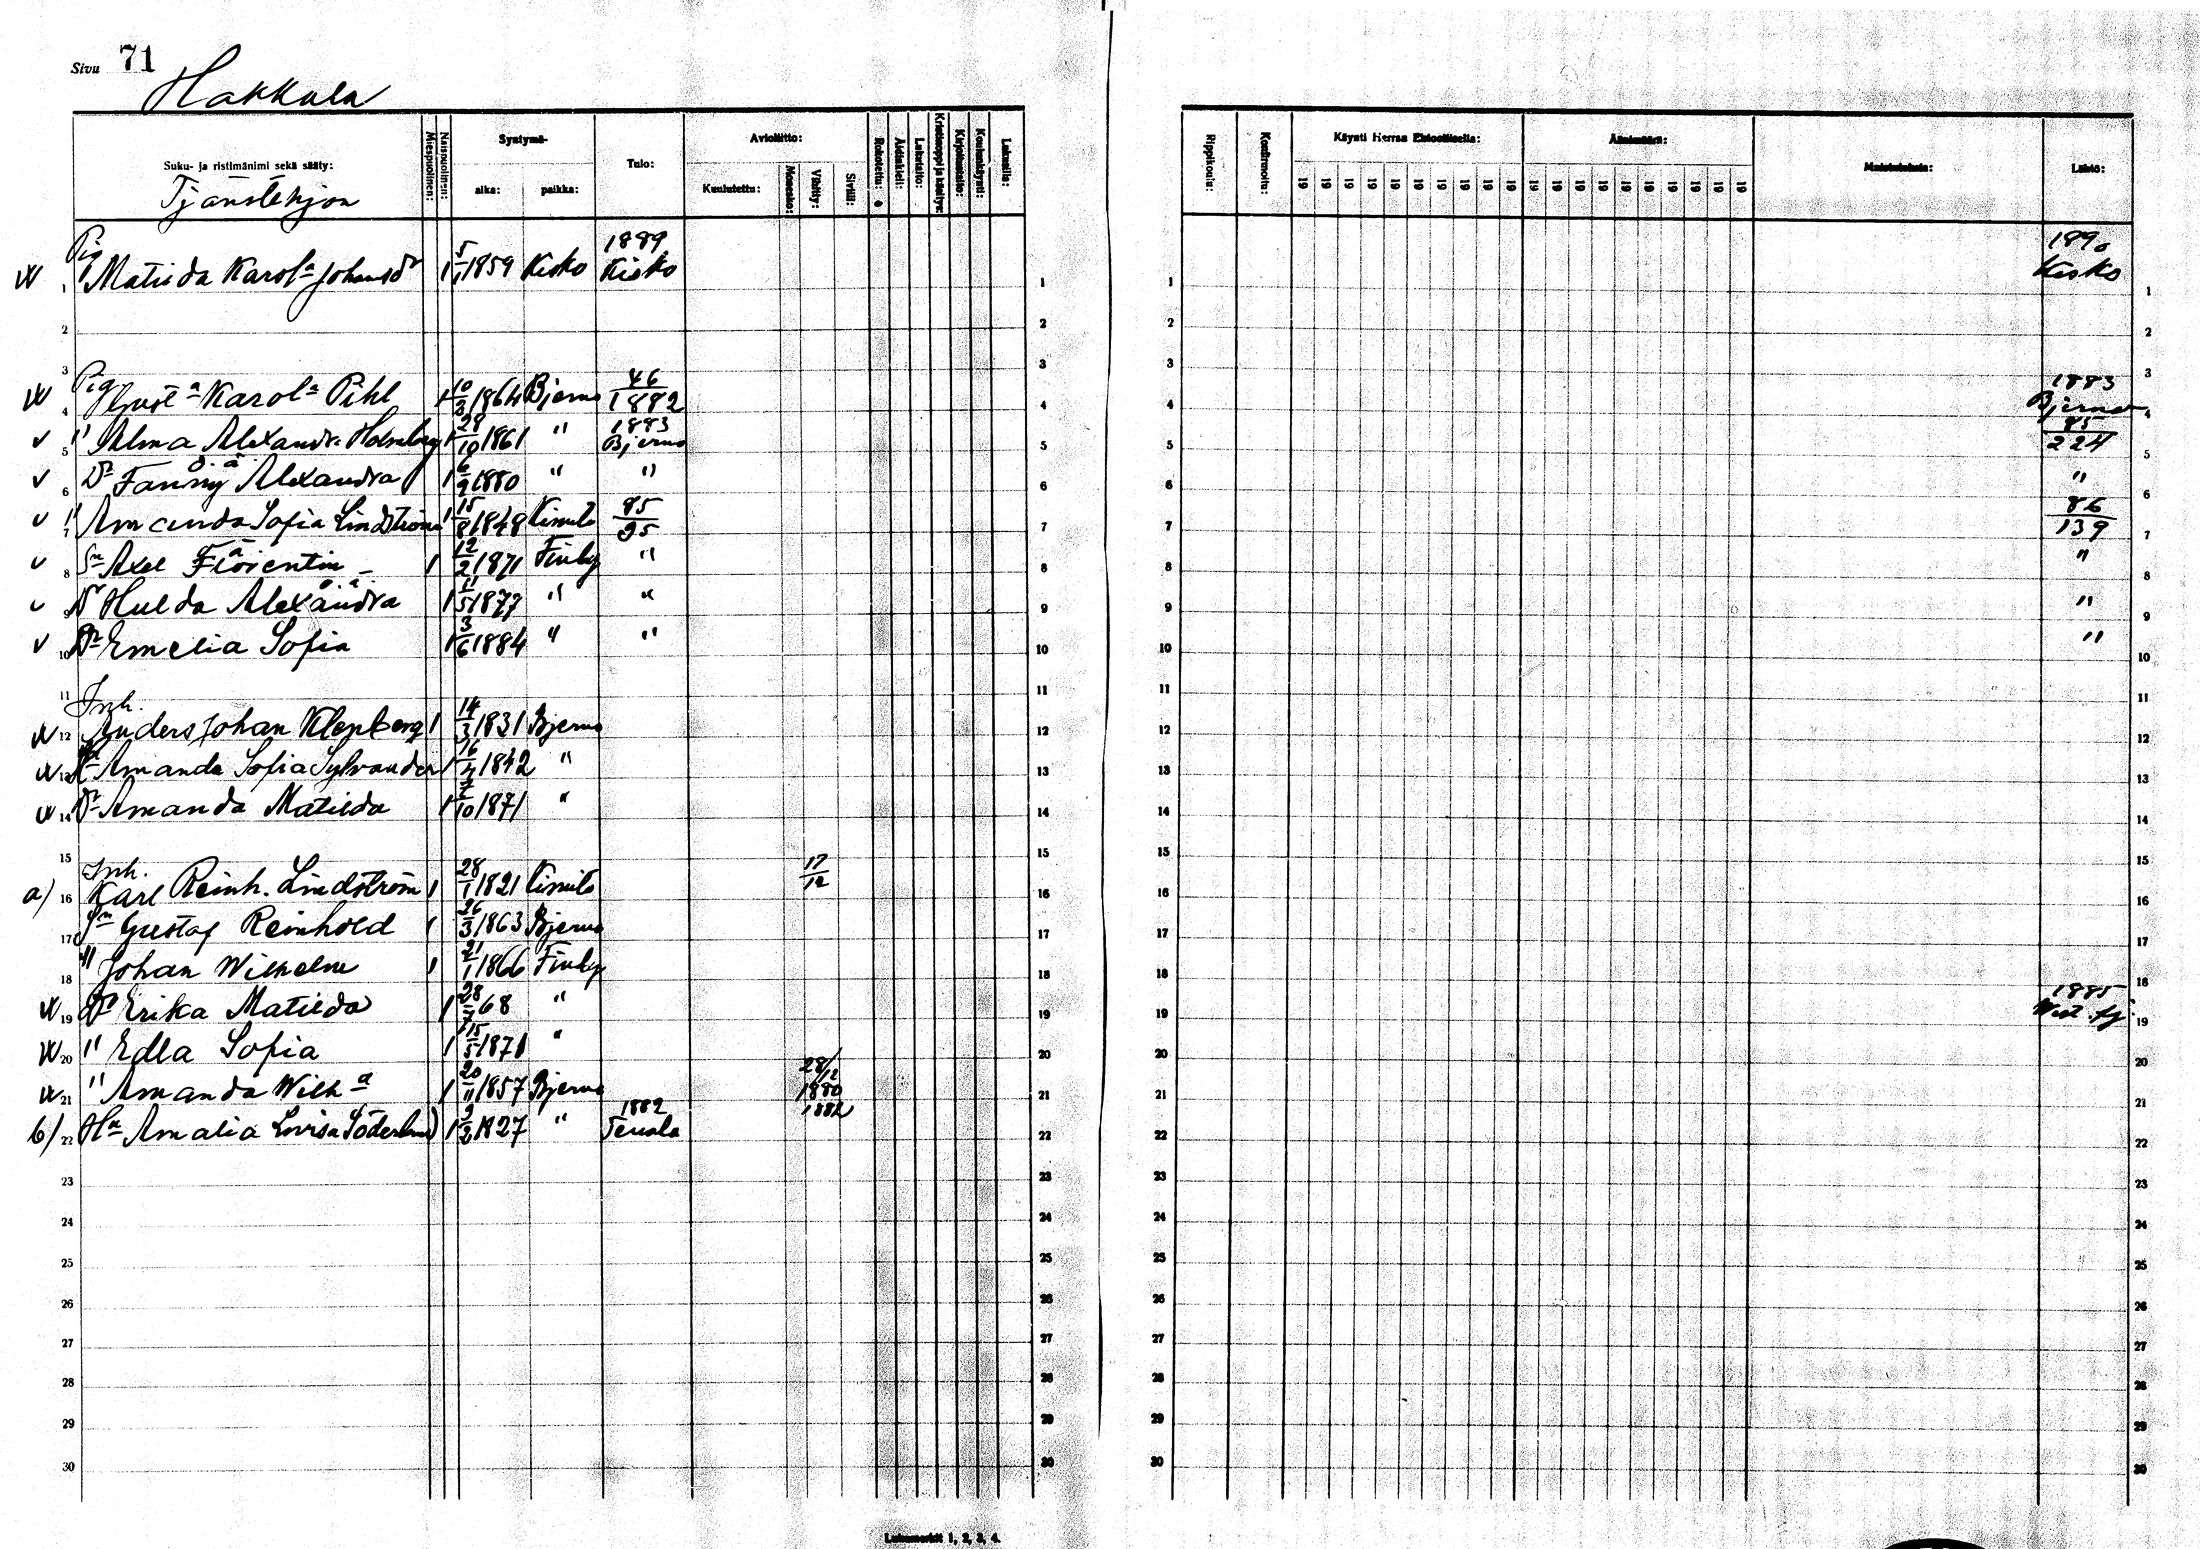 Sivu 71
Hakkala
Suku- ja ristimänimi sekä sääty:
Tjänstehjon
Miespuolinen:
Naispuolinen:
Syntymä-
aika:
paikka:
Tulo:
Avioliitto:
Kuulutettu:
Vihitty:
Siviili:
Rokotettu:
Äidinkieli:
Lukutaito:
Kirjoitustaito:
Koulunkäynti:
Lukusija:
Rippikoulu:
Konfirmoitu:
Käynti Herran Ehtoollisella:
19 19 19 19 19 19 19 19 19 19
19 19 19 19 19 19 19 19 19 19
Muistutuksia:
Lähtö:
Pig 1889 1890
1 Matilda Karolª Johansdr 1 5/1 1859 Kisko Kisko Kisko 1
2 2
3 3
Pig 1883
4 Gustª Karolª Pihl 1 10/3 1864 Bjerno 46/1882 Bjerno 4
5 " Alma Alexandra Holmberg 1 28/10 1861 " 1883 Bjerno 85/224 5
6 Dr Fanny Alexandra 1 6/9 1880 " " " 6
7 " Amanda Sofia Lindström 1 15/8 1848 Kimito 85/95 86/139 7
8 Sn Axel Florentin 1 12/2 1871 Finby " " 8
9 Dr Hulda Alexandra 1 11/5 1877 " " " 9
10 Dr Emelia Sofia 1 3/6 1884 " " " 10
11 Inh. 11
12 Anders Johan Klepberg 1 14/3 1831 Bjerno 12
13 Amanda Sofia Sylvander 1 16/4 1842 " 13
14 Dr Amanda Matilda 1 /10 1871 " 14
15 Inh. 15
a) 16 Karl Reinh. Lindström 1 28/1 1821 Kimito 17/12 16
17 Sn Gustaf Reinhold 1 26/3 1863 Bjerno 17
18 " Johan Wilhelm 1 21/1 1866 Finby 18
19 Dr Erika Matilda 1 28/ 68 " 1885 19
20 " Edla Sofia 1 15/5 1871 " 20
21 " Amanda Wilhª 1 20/11 1857 Bjerno 28/12 1880 21
b) 22 Hu Amalia Lovisa Söderlund 1 2/2 1827 " 1882 Tenala 1882 22
23 23
24 24
25 25
26 26
27 27
28 28
29 29
30 30
Lukumerkit 1, 2, 3, 4.